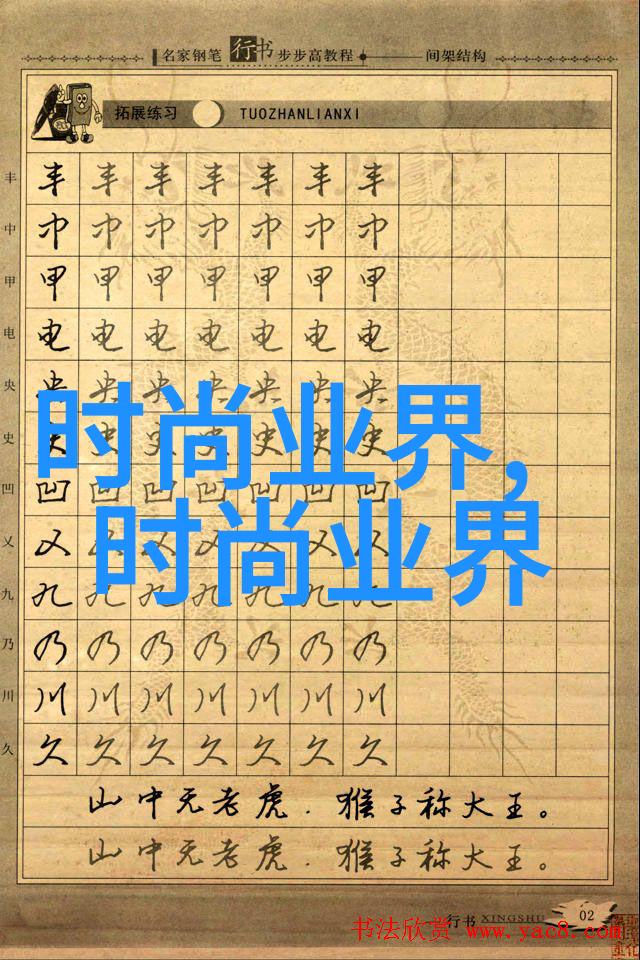 名家钢笔行书步步高教程 间架结构
拓展练习 TUOZHANLIANXI
丰 丰 丰 丰 丰 丰 丰 丰
中 中 中 中 中 中 中 中
甲 甲 甲 甲 甲 甲 甲 甲
电 电 电 电 电 电 电 电
央 央 央 央 央 央 央 央
时尚业界,
史 史 史 史 史 史 史 史
凹 凹 凹 凹 凹 凹 凹 凹
时尚业界
乂 乂 乂 乂 乂 乂 乂 乂
九 九 九 九 九 九 九 九
乃 乃 乃 乃 乃 乃 乃 乃
川 川 川 川 川 川 川 川
久 久 久 久 久 久 久 久
山中无老虎.猴子称大王。
山中无老虎.猴子称大王。
行书 XINGSHU 02
书法欣赏 www.yac8.com